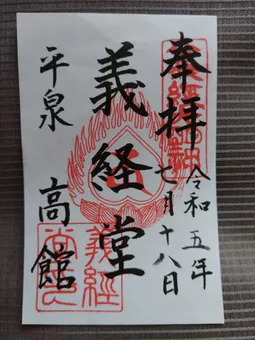 奉拝
令和五年
七月十八日
義経堂
平泉 高館